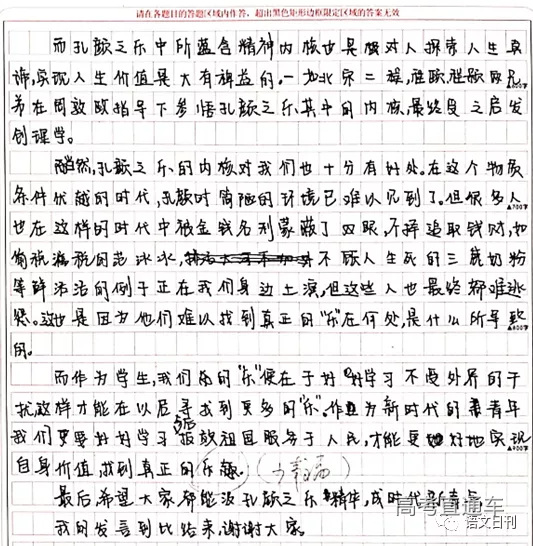 请在各题目的答题区域内作答,超出黑色矩形边框限定区域的答案无效
而孔颜之乐中所蕴含精神内核也是极对人探索人生真
谛,实现人生价值是大有裨益的。一如北宋二程,程颐程颢两兄
弟在周敦颐指导下参悟孔颜之乐其中的内核,最终使之后发
创理学。
▲600字
当然,孔颜之乐的内核对我们也十分有好处。在这个物质
条件优越的时代,孔颜时简陋的环境已难以见到了。但很多人
▲700字
也在这样的时代中被金钱名利蒙蔽了双眼,不择追取钱财,如
偷税漏税的范冰冰,不顾人生死的三鹿奶粉
等鲜活活的例子正在我们身边上演,但这些人也最终都难逃
这也是因为他们难以找到真正的“乐”在何处,是什么所导致
▲800字
的。
而作为学生,我们的“乐”便在于好好学习不受外界的干
扰这样才能在以后寻找到更多的“乐”。作为新时代的青年
我们更要好好学习报效祖国服务于人民,才能更好地实现
▲900字
自身价值,找到真正的乐趣。
最后希望大家都能汲孔颜之乐精华,成时代新青年
我的发言到此结束,谢谢大家。
高考直通车
语文日刊